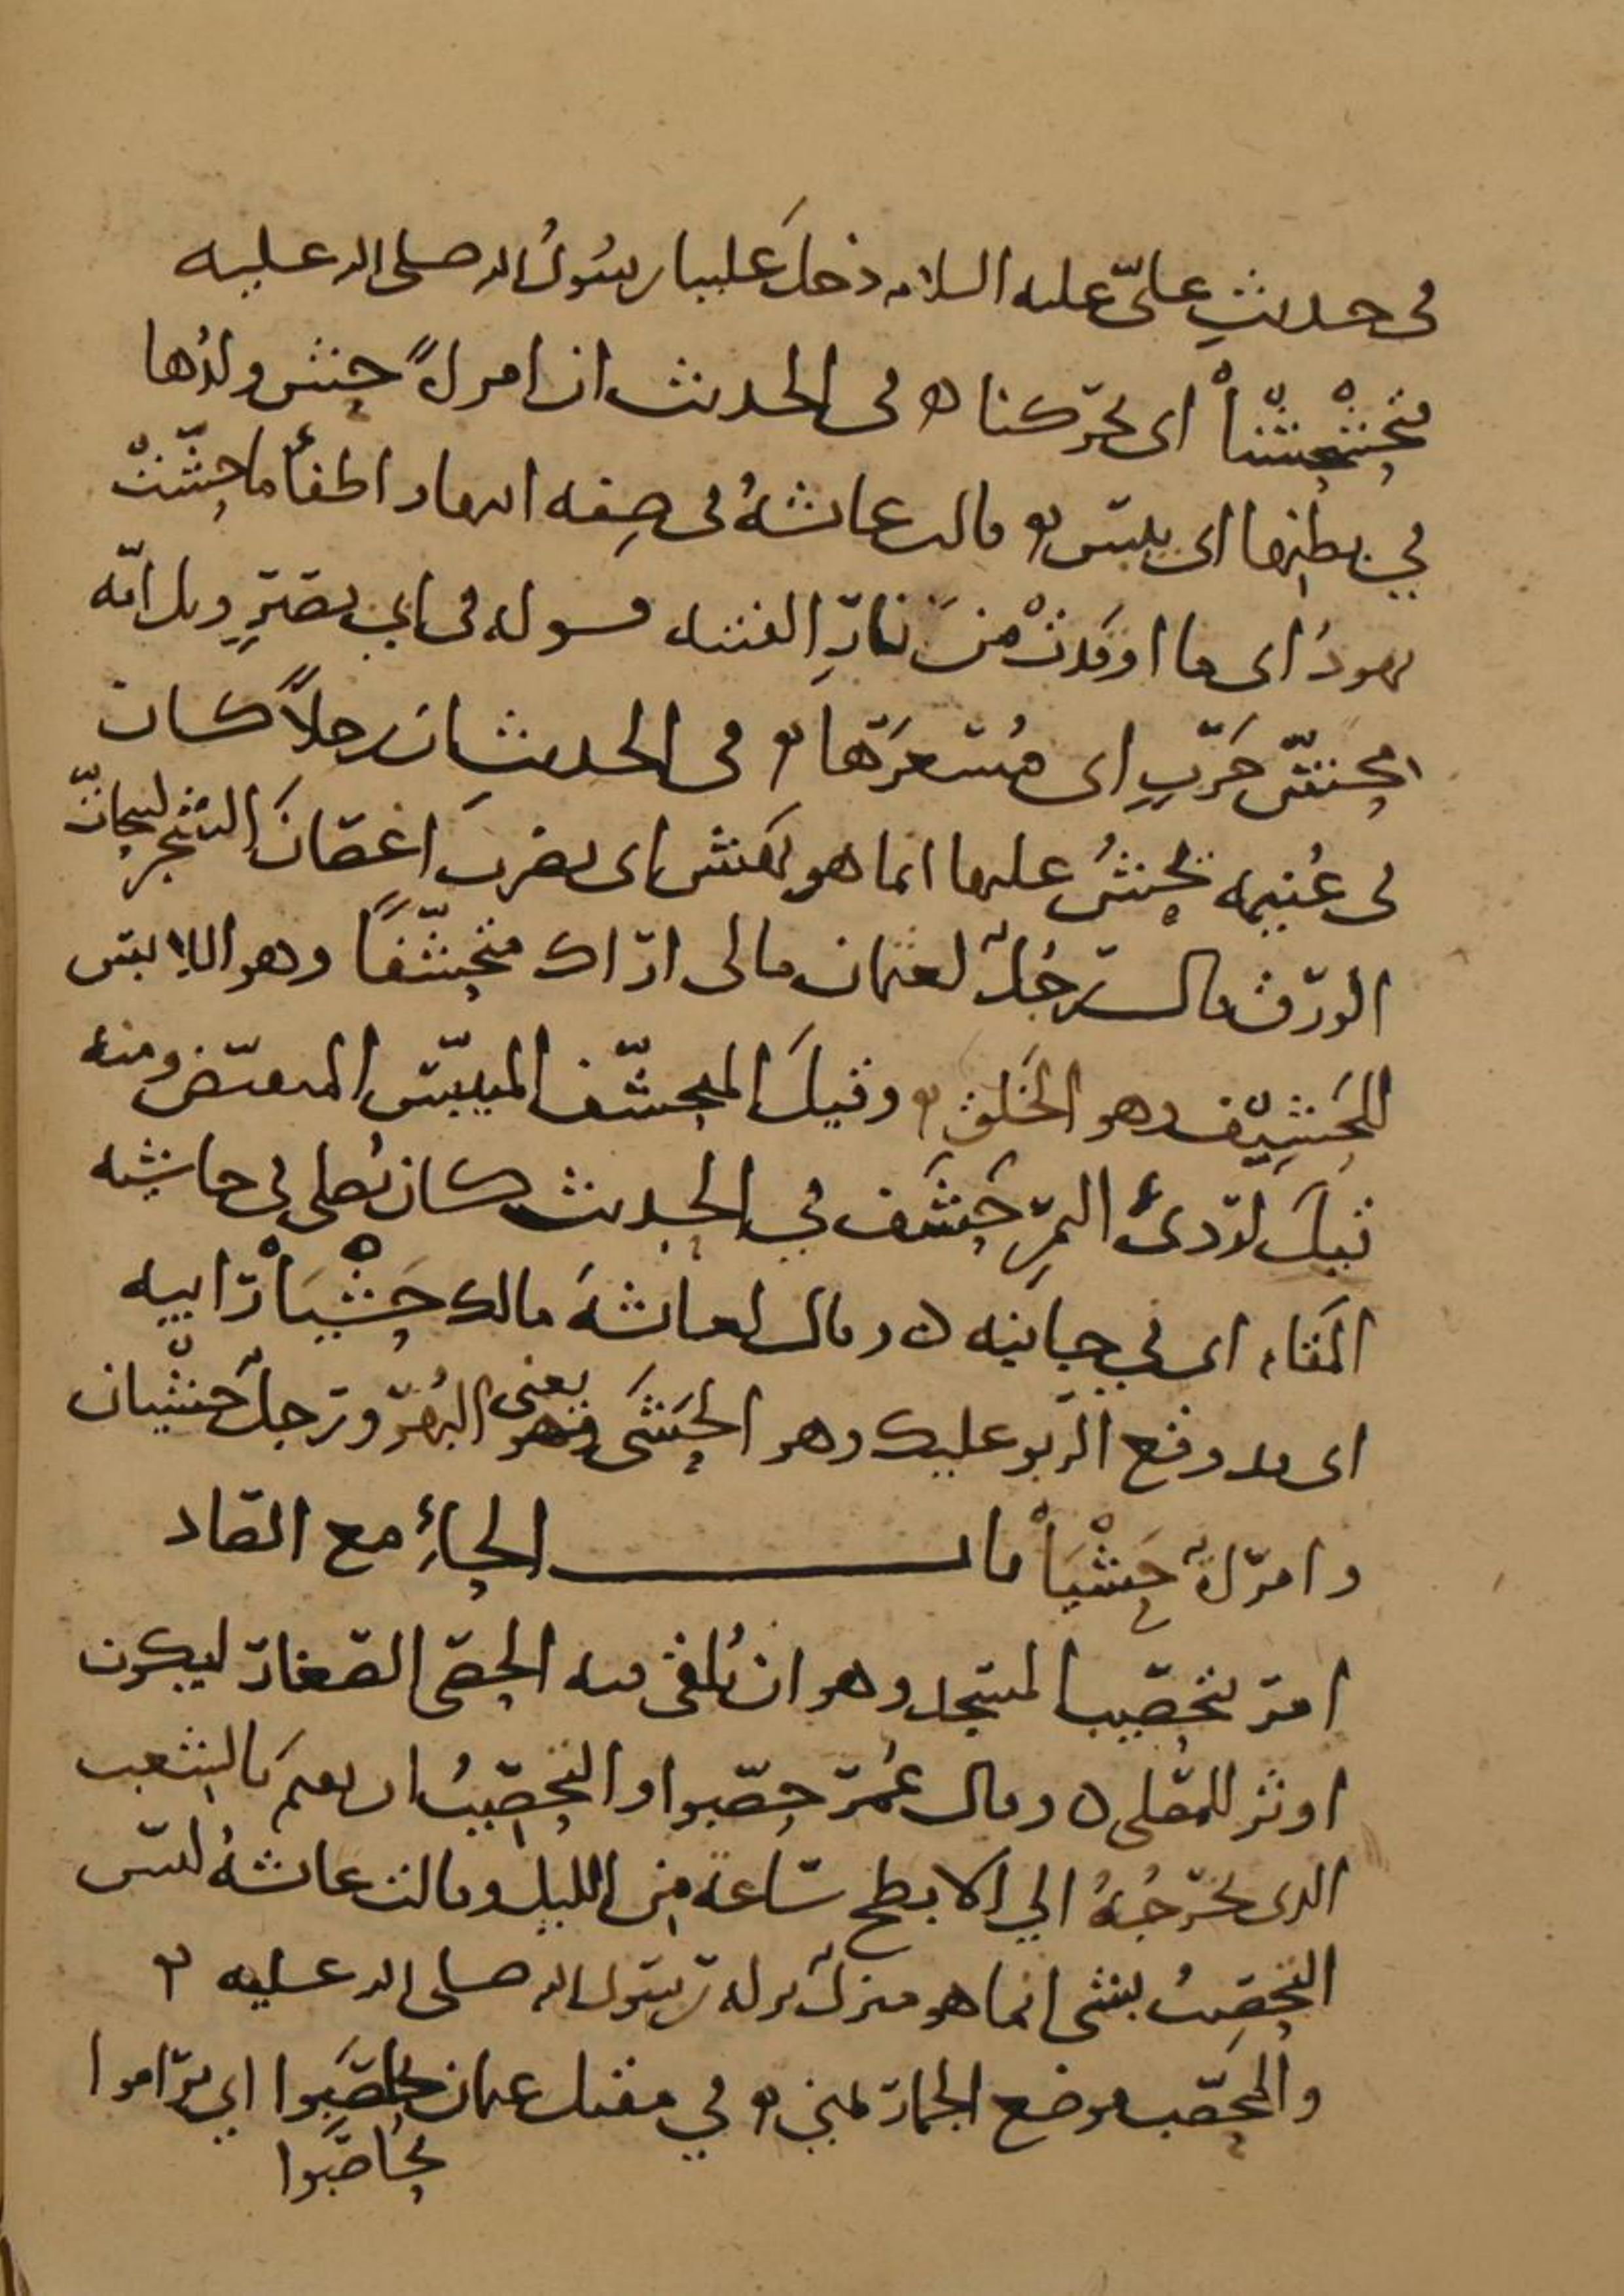 في حديثِ عليّ عليه السلام دخلَ علينا رسُولُ الله صلى الله عليه
فتحَشْحَشْنا اى تحرّكنا ه في الحديث ان امراةً حشّ ولدُها
في بطنِها اى يبس ه قالت عائشةُ في صِفه ابيها واطفأ ما حشّتْ
يهودُ اى ما اوقدتْ من نارِ الفتنه قوله في ابي بصيرٍ ويل امّه
محشّ حَربٍ اى مُسعرَها ه في الحديث ان رجلاً كان
في غُنيمه يحشُّ عليها انما هو يهش اى يضربَ اغصانَ الشجر ليحاتّ
الورق قالـــ رجُلٌ لعثمان مالى اراك متحشّفًا وهو اللابس
للحَشِيْف وهو الخَلق ه وقيلَ المتحشّف المبيبّس المتقبّض ومنه
قيلَ لردىء التمرِ حَشَف في الحديث كان يُصلى في حاشيه
المَقام اى في جانبه ه وقال لعائشهَ مالك حَشْيَاْ رابيه
اى قد وقع الربو عليك وهو الحَشَى وهو يعنى البُهرّ ورجلٌ حَشْيان
وامراةٌ حَشْيَاْ بابــــــــ الحاءِ مع الصاد
امر بتحصيب المسجد وهو ان تُلقى فيه الحصَى الصغار ليكون
اوثر للمصلى ه وقال عُمر حصّبوا والتحصيبُ ان يقيمَ بالشعب
الذى يخرجُهُ الي الابطح ساعةً من الليل وقالت عائشةُ ليس
التحصيبُ بشي انما هو منزلٌ نزله رسول الله صلى الله عليه ه
والمحصّب موضع الجمار بمنى ه في مقتل عثمان تحاصَبوا اي تراموا
تحاصَبوا